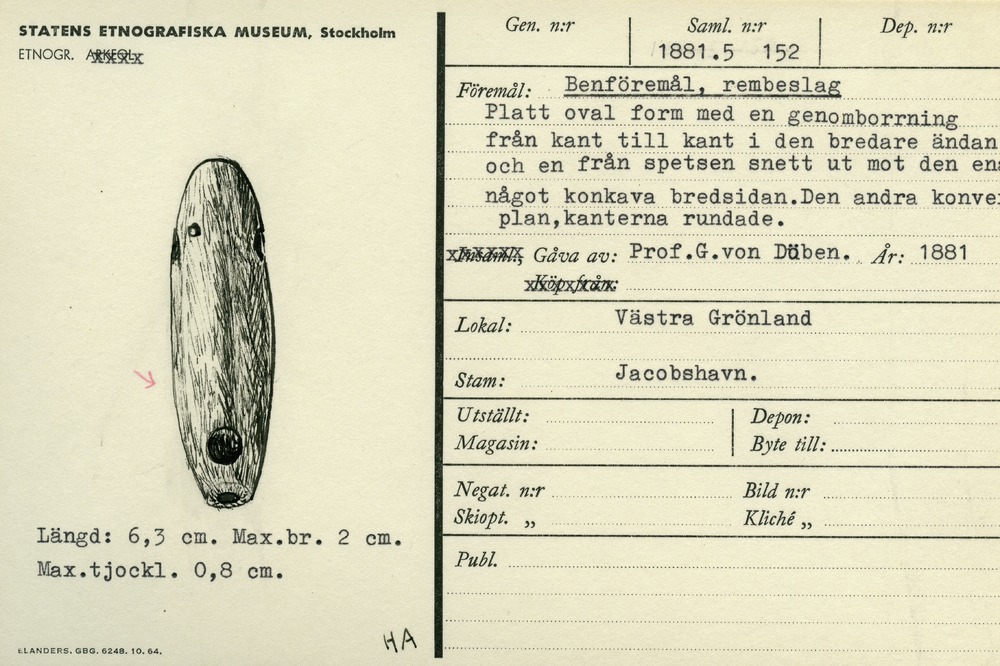 STATENS ETNOGRAFISKA MUSEUM, Stockholm
ETNOGR. ARKEOL.
Längd: 6,3 cm. Max.br. 2 cm.
Max.tjockl. 0,8 cm.
ELANDERS. GBG. 6248. 10. 64.
HA
Gen. n:r
Saml. n:r
Dep. n:r
1881.5 152
Föremål: Benföremål, rembeslag
Platt oval form med en genomborrning
från kant till kant i den bredare ändan
och en från spetsen snett ut mot den ena
något konkava bredsidan.Den andra konve
plan,kanterna rundade.
Insaml., Gåva av: Prof.G.von Düben. År: 1881
Köpt från:
Lokal: Västra Grönland
Stam: Jacobshavn.
Utställt:
Depon:
Magasin:
Byte till:
Negat. n:r
Bild n:r
Skiopt. „
Kliché „
Publ.